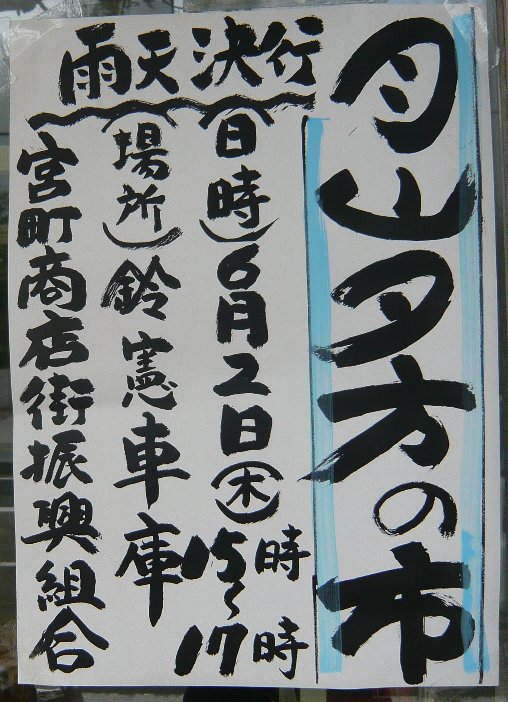 月山夕方の市
雨天決行
(日時)6月2日(木)15時~17時
(場所)鈴憲車庫
宮町商店街振興組合